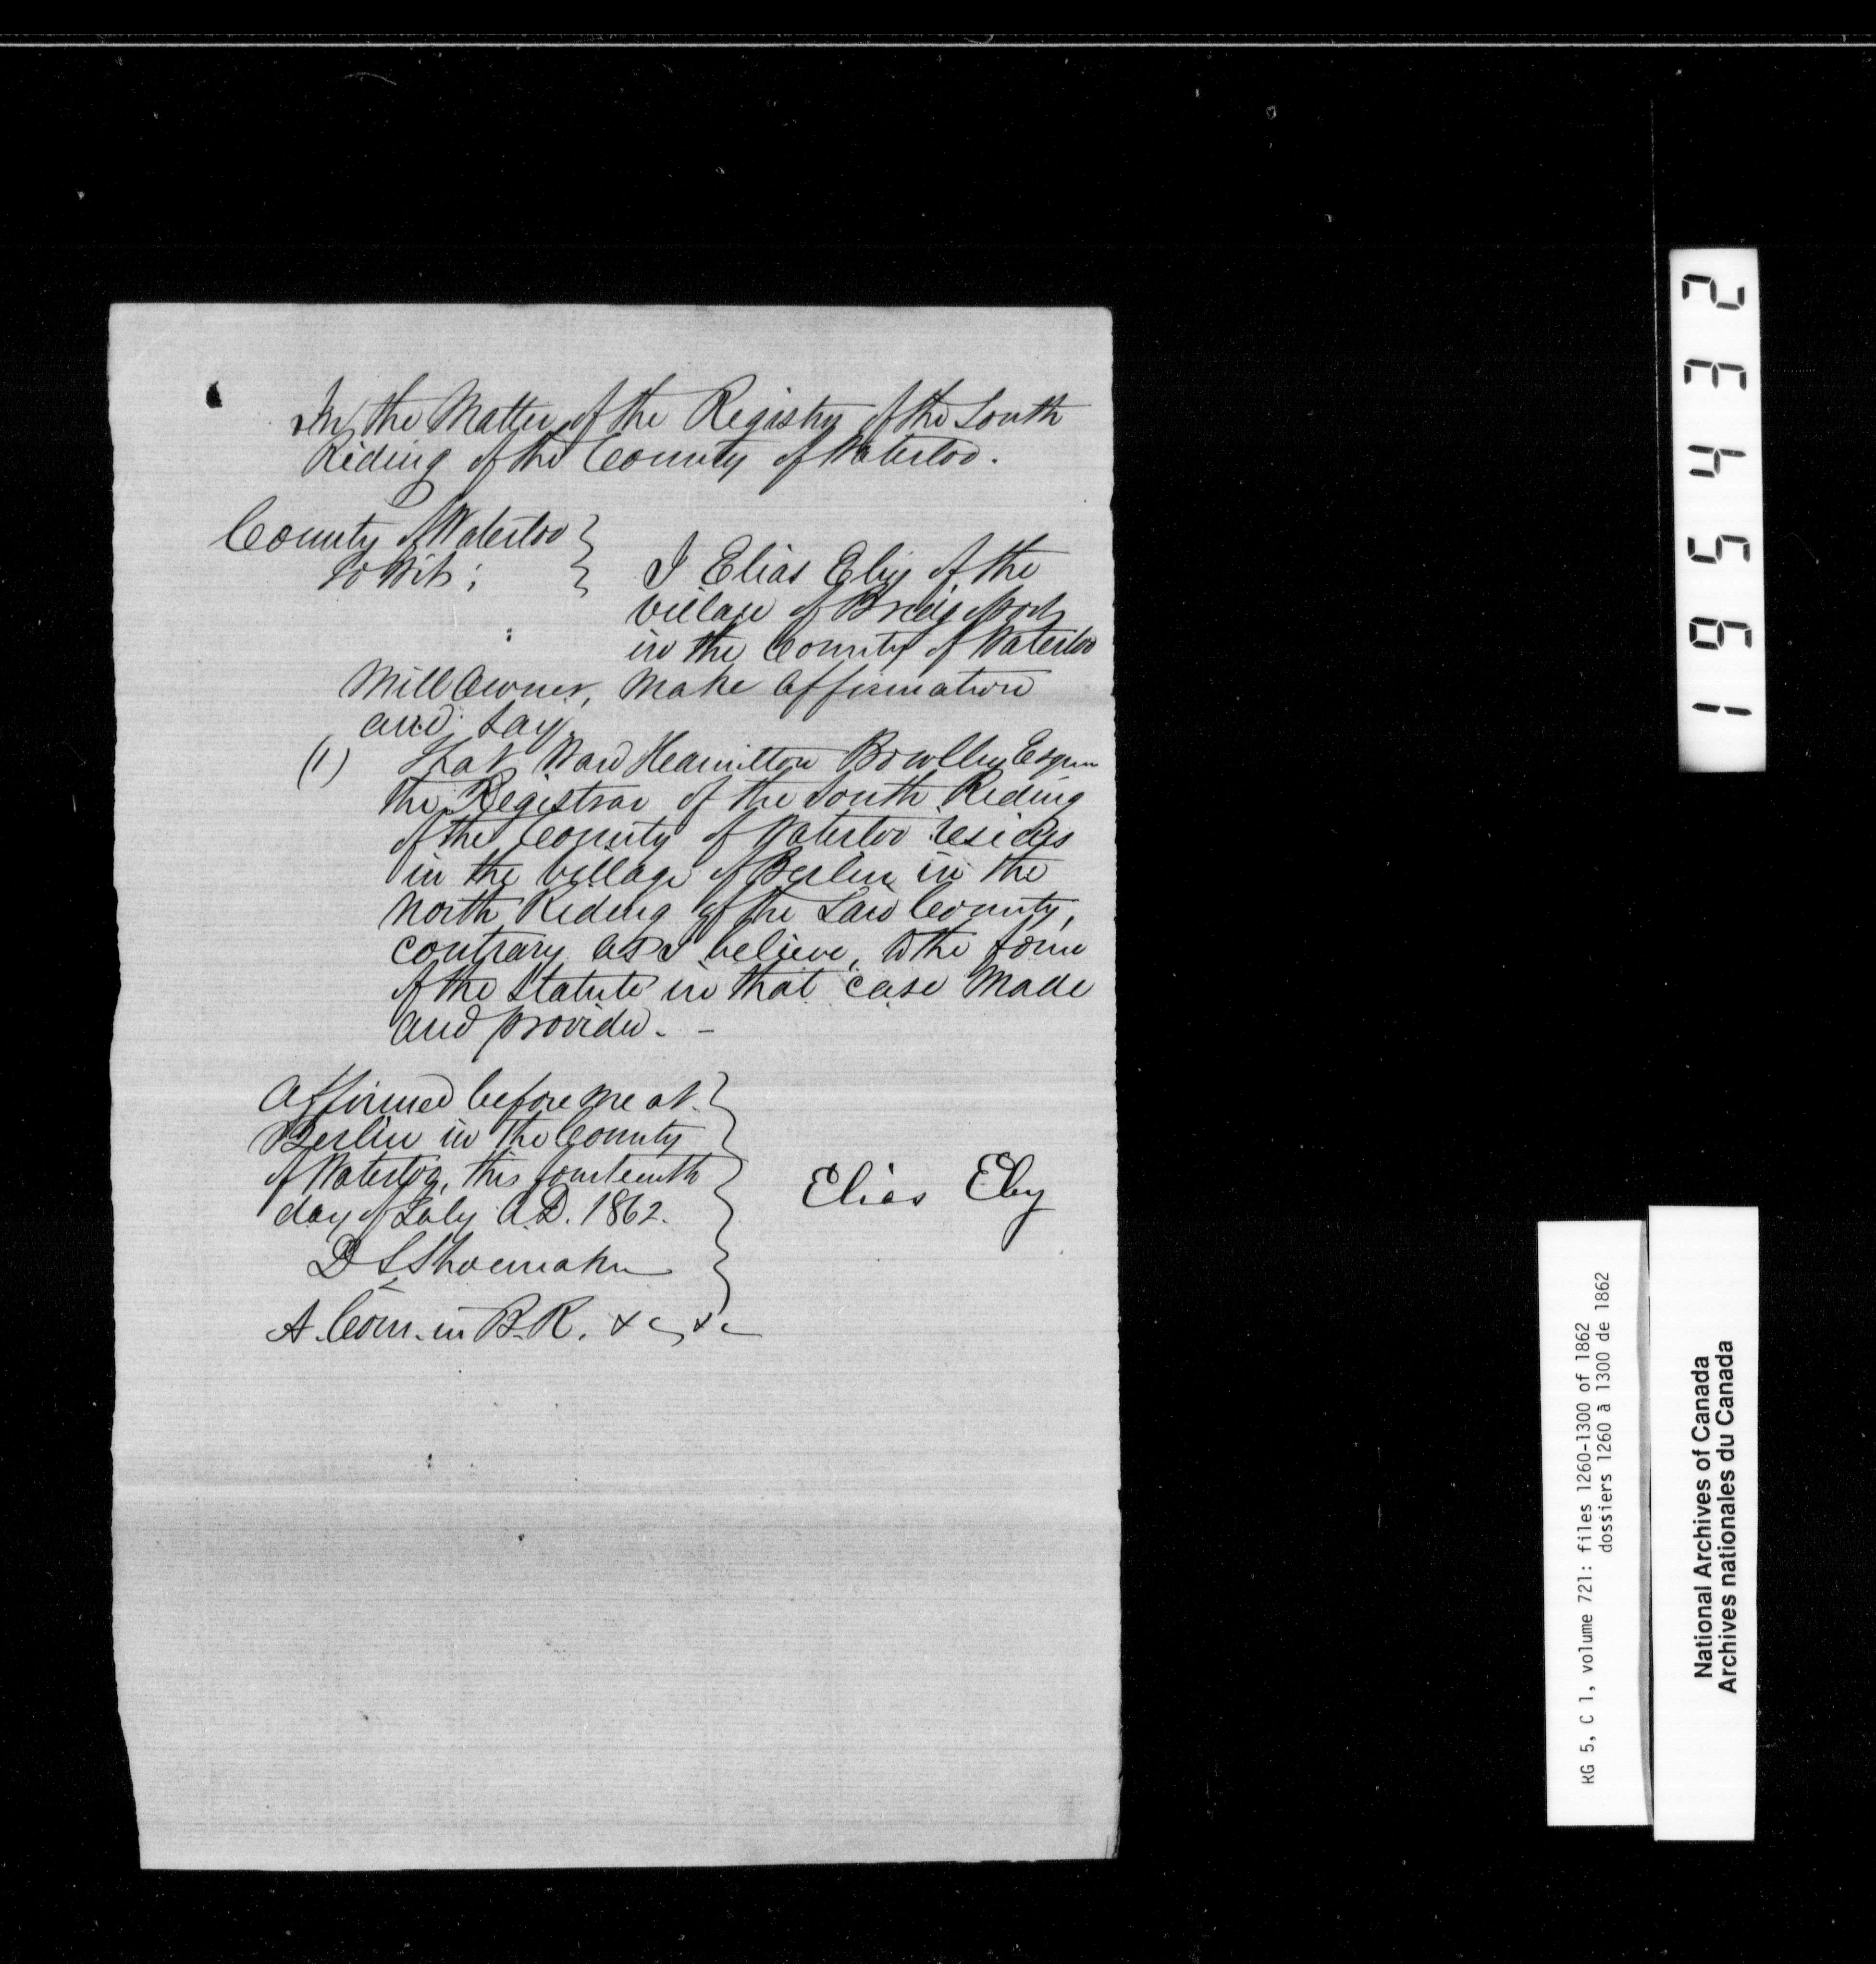 In the Matter of the Registry of the South
Riding of the County of Waterloo.
County of Waterloo
To Wit:
I Elias Eby of the
Village of Bridgeport
in the County of Waterloo
Mill Owner, make affirmation
and say.
(1) That Ward Hamilton Bowlby Esqr
the Registrar of the South Riding
of the County of Waterloo resides
in the Village of Berlin in the
North Riding of the said County,
contrary as I believe, to the form
of the Statute in that case made
and provided. -
Affirmed before me at
Berlin in the County
of Waterloo, this fourteenth
day of July A.D. 1862.
D S Shoemaker
A. Com. in B.R. &c, &c
Elias Eby
195432
RG 5, C 1, volume 721: files 1260-1300 of 1862
dossiers 1260 à 1300 de 1862
National Archives of Canada
Archives nationales du Canada